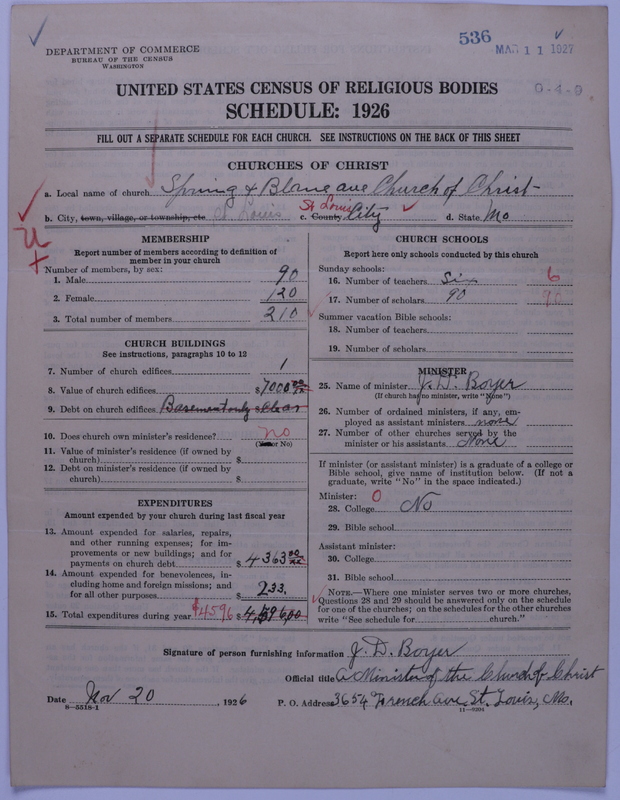 536
MAR 11 1927
DEPARTMENT OF COMMERCE
BUREAU OF THE CENSUS
WASHINGTON
UNITED STATES CENSUS OF RELIGIOUS BODIES
0-4-9
SCHEDULE: 1926
FILL OUT A SEPARATE SCHEDULE FOR EACH CHURCH. SEE INSTRUCTIONS ON THE BACK OF THIS SHEET
CHURCHES OF CHRIST
a. Local name of church Spring & Blaine ave Church of Christ
b. City, town, village, or township, etc. St Louis c. County St Louis City d. State Mo
MEMBERSHIP
Report number of members according to definition of
member in your church
Number of members, by sex:
1. Male 90
2. Female 120
3. Total number of members 210
CHURCH BUILDINGS
See instructions, paragraphs 10 to 12
7. Number of church edifices 1
8. Value of church edifices $7000 00
9. Debt on church edifices Basement only $ Clear
10. Does church own minister's residence? no
(Yes or No)
11. Value of minister's residence (if owned by
church) $
12. Debt on minister's residence (if owned by
church) $
EXPENDITURES
Amount expended by your church during last fiscal year
13. Amount expended for salaries, repairs,
and other running expenses; for im-
provements or new buildings; and for
payments on church debt $4363 00
14. Amount expended for benevolences, in-
cluding home and foreign missions; and
for all other purposes $ 233.
15. Total expenditures during year $4596 $4,596,00
CHURCH SCHOOLS
Report here only schools conducted by this church
Sunday schools:
16. Number of teachers Six 6
17. Number of scholars 90 90
Summer vacation Bible schools:
18. Number of teachers
19. Number of scholars
MINISTER
25. Name of minister J. D. Boyer
(If church has no minister, write "None")
26. Number of ordained ministers, if any, em-
ployed as assistant ministers none
27. Number of other churches served by the
minister or his assistants None
If minister (or assistant minister) is a graduate of a college or
Bible school, give name of institution below. (If not a
graduate, write "No" in the space indicated.)
Minister: 0
28. College No
29. Bible school
Assistant minister:
30. College
31. Bible school
NOTE.—Where one minister serves two or more churches,
Questions 28 and 29 should be answered only on the schedule
for one of the churches; on the schedules for the other churches
write "See schedule for church."
Signature of person furnishing information J. D. Boyer
Official title a Minister of the Church of Christ
Date Nov 20, 1926 P. O. Address 3654 French ave St. Louis, Mo.
8-5518-1 11-9204